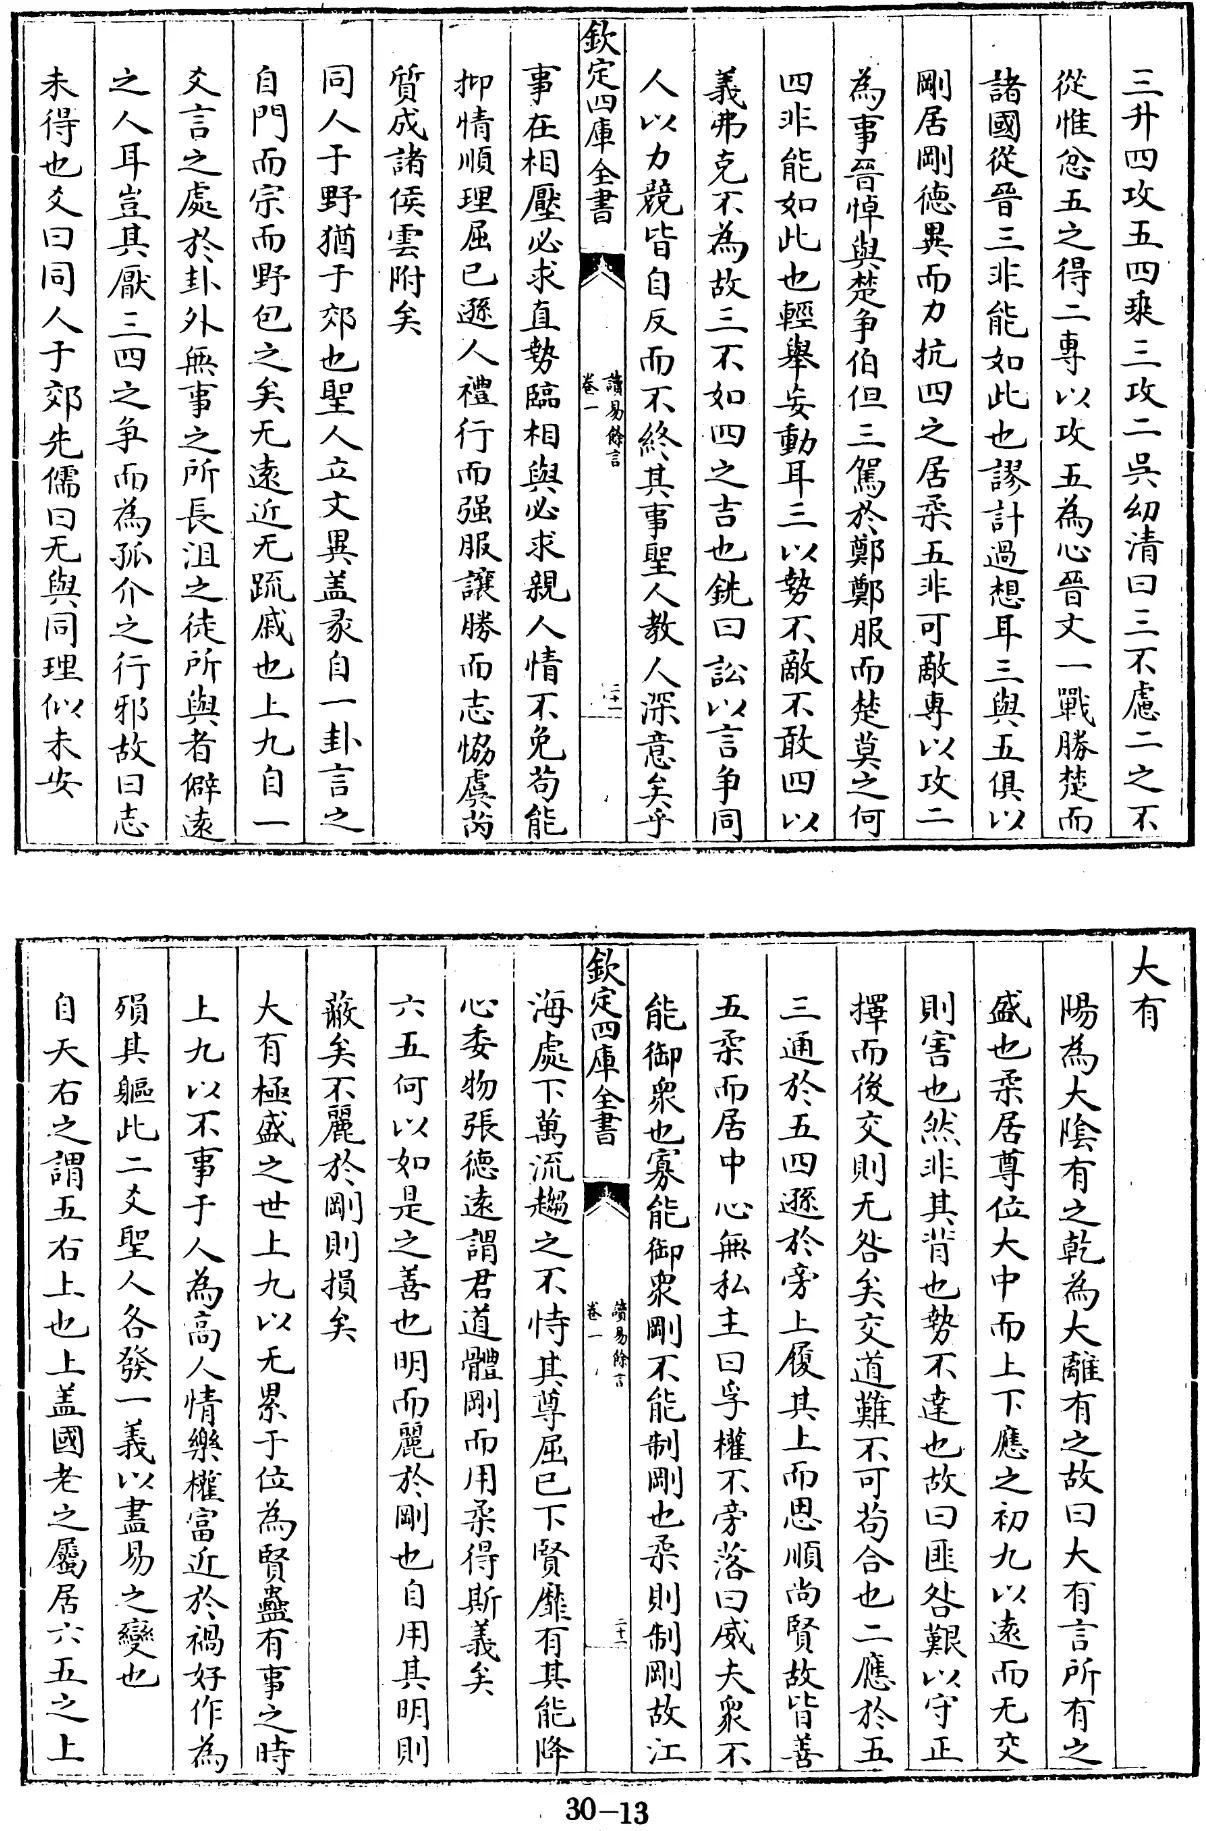 三升四攻五四乗三攻二吳幼清曰三不慮二之不
從惟忿五之得二專以攻五為心晉文一戰勝楚而
諸國從晉三非能如此也謬計過想耳三與五俱以
剛居剛德異而力抗四之居柔五非可敵專以攻二
為事晉悼與楚争伯但三駕於鄭鄭服而楚莫之何
四非能如此也輕舉妄動耳三以勢不敵不敢四以
義弗克不為故三不如四之吉也銑曰訟以言争同
人以力競皆自反而不終其事聖人教人深意矣乎
欽定四庫全書
讀易餘言
卷一
二十一
事在相壓必求直勢臨相與必求親人情不免苟能
抑情順理屈已遜人禮行而强服讓勝而志恊虞芮
質成諸侯雲附矣
同人于野猶于郊也聖人立文異盖彖自一卦言之
自門而宗而野包之矣无逺近无疏戚也上九自一
爻言之處於卦外無事之所長沮之徒所與者僻逺
之人耳豈其厭三四之争而為孤介之行邪故曰志
未得也爻曰同人于郊先儒曰无與同理似未安
大有
陽為大陰有之乾為大離有之故曰大有言所有之
盛也柔居尊位大中而上下應之初九以逺而无交
則害也然非其背也勢不達也故曰匪咎艱以守正
擇而後交則无咎矣交道難不可苟合也二應於五
三通於五四遜於旁上履其上而思順尚賢故皆善
五柔而居中心無私主曰孚權不旁落曰威夫衆不
能御衆也寡能御衆剛不能制剛也柔則制剛故江
欽定四庫全書
讀易餘言
卷一
二十一
海處下萬流趨之不恃其尊屈已下賢靡有其能降
心委物張德逺謂君道體剛而用柔得斯義矣
六五何以如是之善也明而麗於剛也自用其明則
蔽矣不麗於剛則損矣
大有極盛之世上九以无累于位為賢蠱有事之時
上九以不事于人為高人情樂權富近於禍好作為
殞其軀此二爻聖人各發一義以盡易之變也
自天右之謂五右上也上盖國老之屬居六五之上
30-13